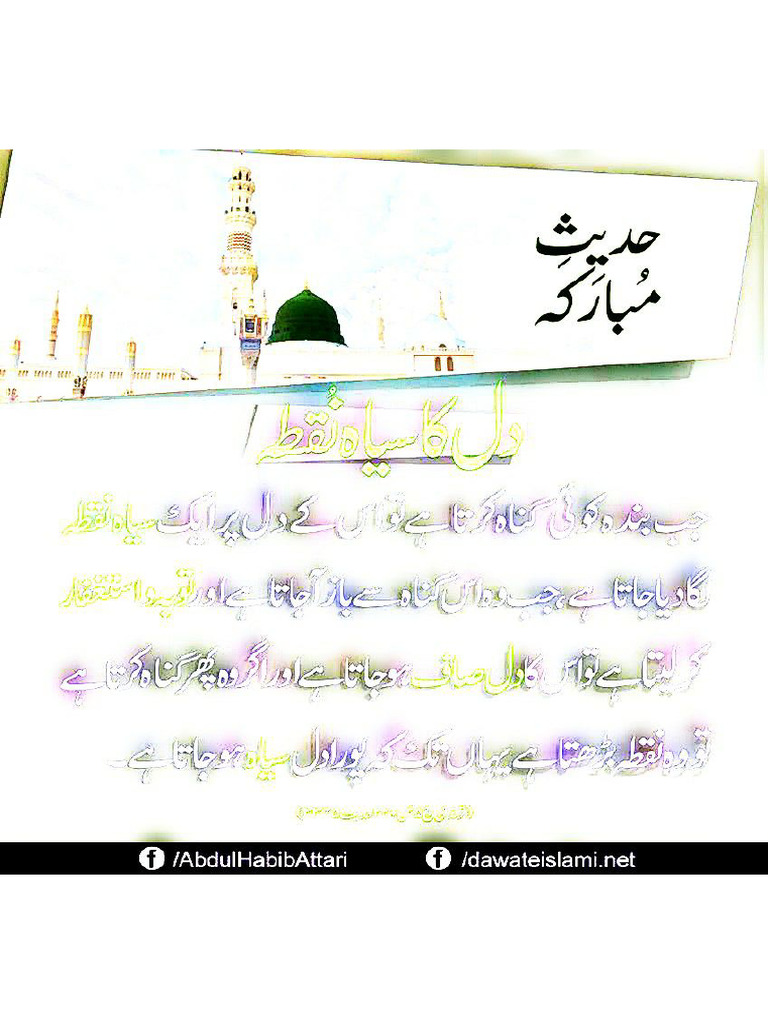 حدیثِ
مُبارَکہ
دل کا سیاہ نُقطہ
جب بندہ کوئی گناہ کرتا ہے تو اس کے دل پر ایک سیاہ نقطہ
لگا دیا جاتا ہے، جب وہ اس گناہ سے باز آ جاتا ہے اور توبہ و استغفار
کر لیتا ہے تو اس کا دل صاف ہو جاتا ہے اور اگر وہ پھر گناہ کرتا ہے
تو وہ نقطہ بڑھتا ہے یہاں تک کہ پورا دل سیاہ ہو جاتا ہے۔
/AbdulHabibAttari
/dawateislami.net